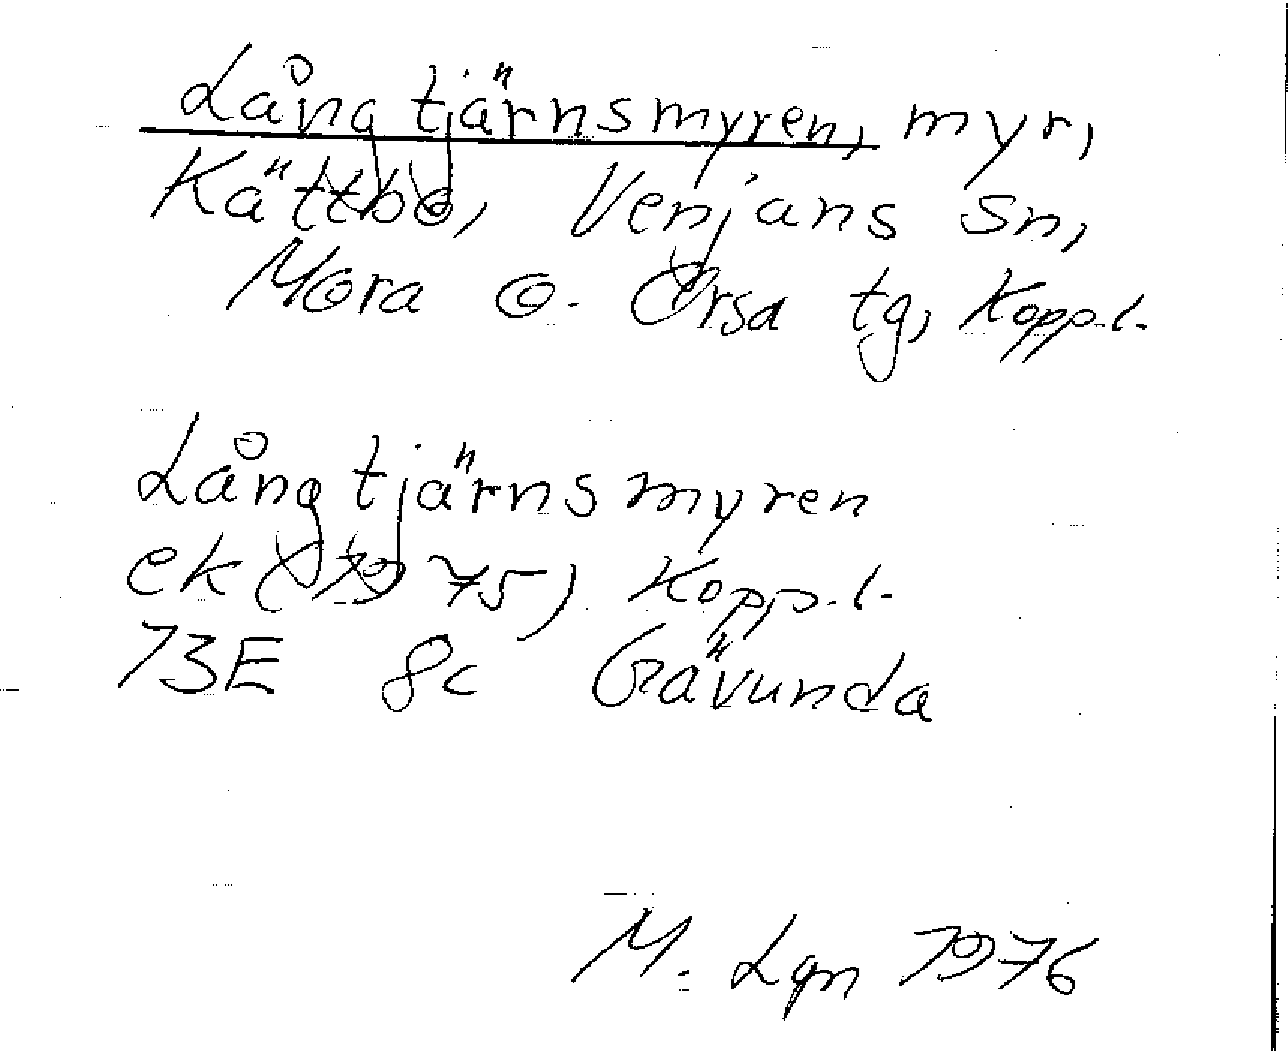 Långtjärnsmyren, myr,
Kättbo, Venjans sn,
Mora o. Orsa tg, Kopp.l.
Långtjärnsmyren
ek (1975) Kopp.l.
13E 8c Gävunda
M. Lgn 1976